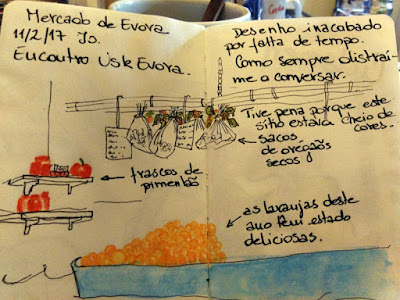 Mercado de Evora
11/2/17 Is.
Encontro Usk Evora.
Desenho inacabado
por falta de tempo.
Como sempre distraí-
me a conversar.
Tive pena porque este
sítio estava cheio de
cores.
sacos
de oregãos
secos
frascos de
pimentão
as laranjas deste
ano têm estado
deliciosas.